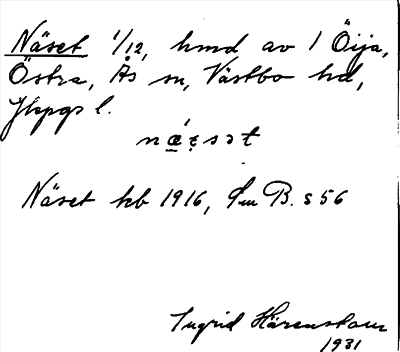 Näset 1/12, hmd av 1 Öija,
Östra, Ås sn, Västbo hd,
Jkpgs l.
Näset hb 1916, Öm B. s 56
Ingrid Härenstam
1931